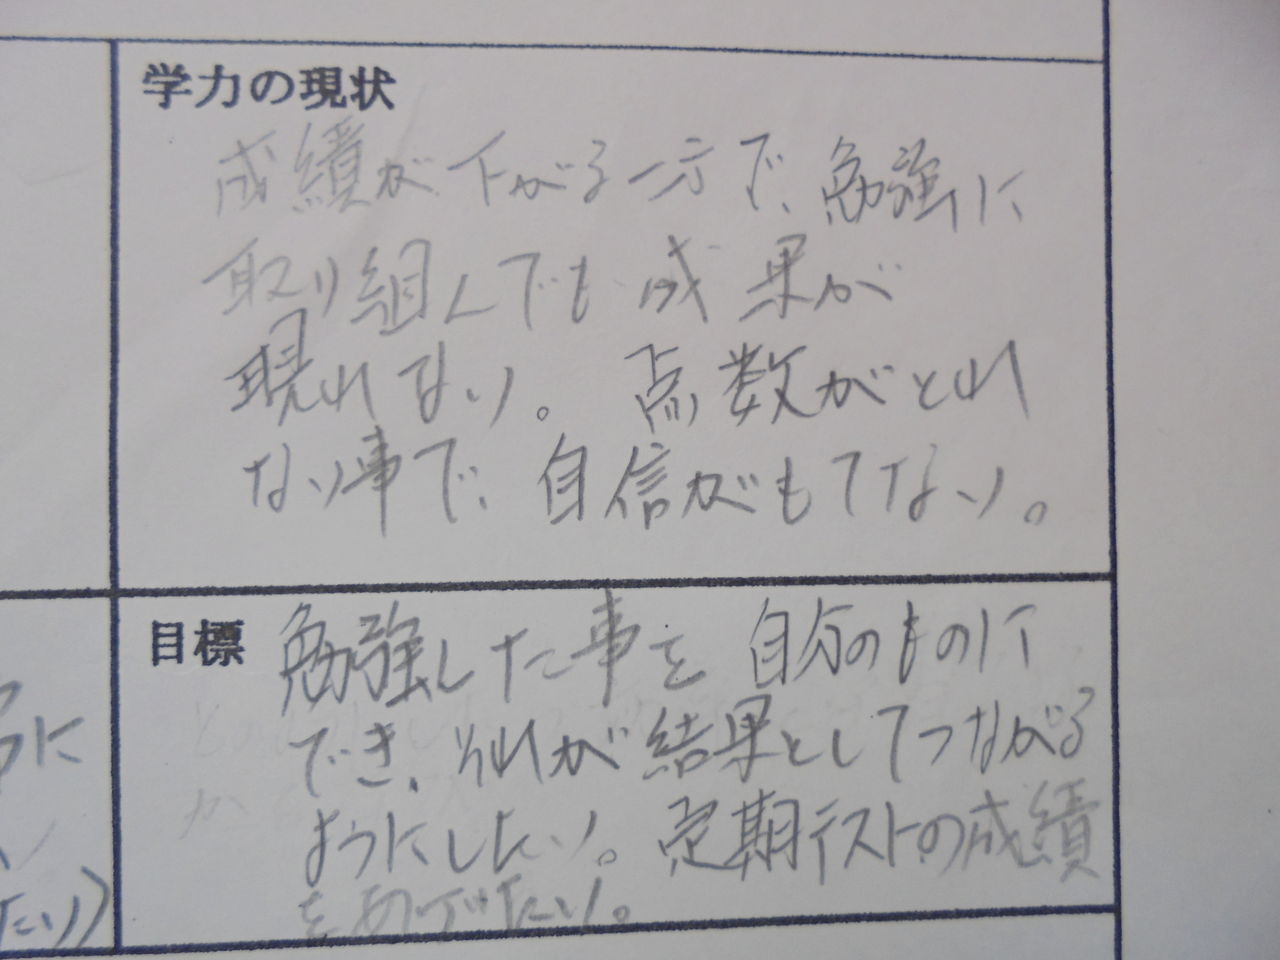 学力の現状
成績が下がる一方で、勉強に
取り組んでも成果が
現れない。点数がとれ
ない事で、自信がもてない。
目標 勉強した事を自分のものに
でき、それが結果としてつながる
ようにしたい。定期テストの成績
をあげたい。
うに
たい)